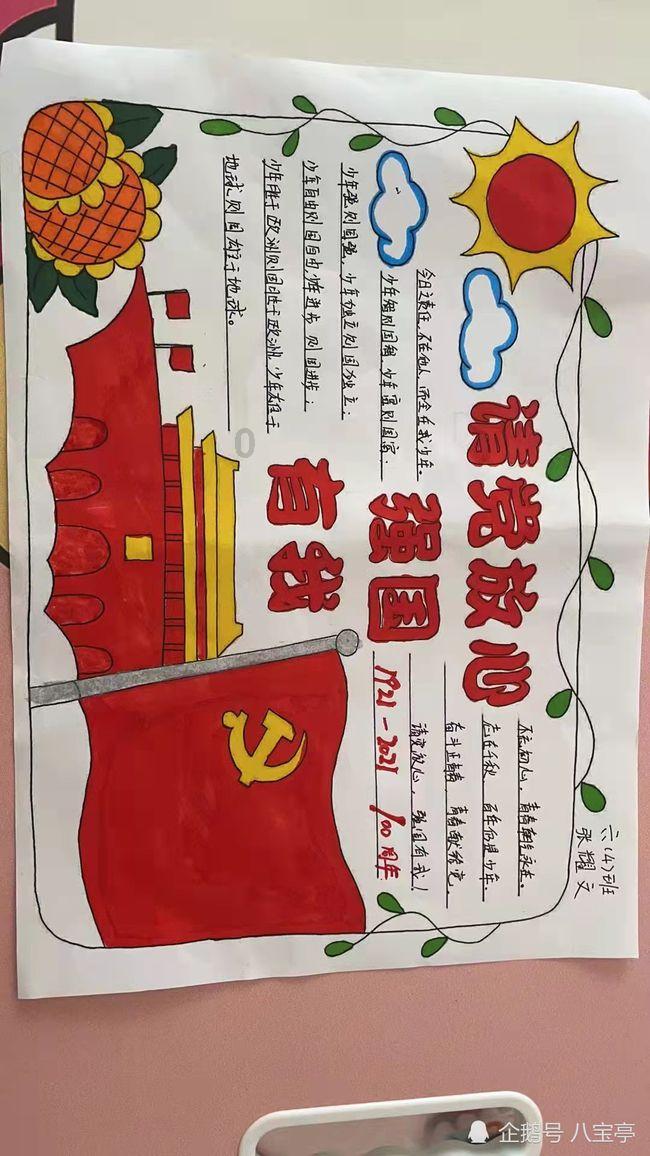 六(4)班
张耀文
请党放心
强国
有我
今日之责任,不在他人,而全在我少年。
少年智则国智,少年富则国富;
少年强则国强,少年独立则国独立;
少年自由则国自由,少年进步则国进步;
少年胜于欧洲则国胜于欧洲,少年雄于
地球,则国雄于地球。
不忘初心,青春朝气永在。
志在千秋,百年仍是少年。
奋斗正青春,青春献给党。
请党放心,强国有我!
1921-2021 100周年
0
企鹅号 八宝亭